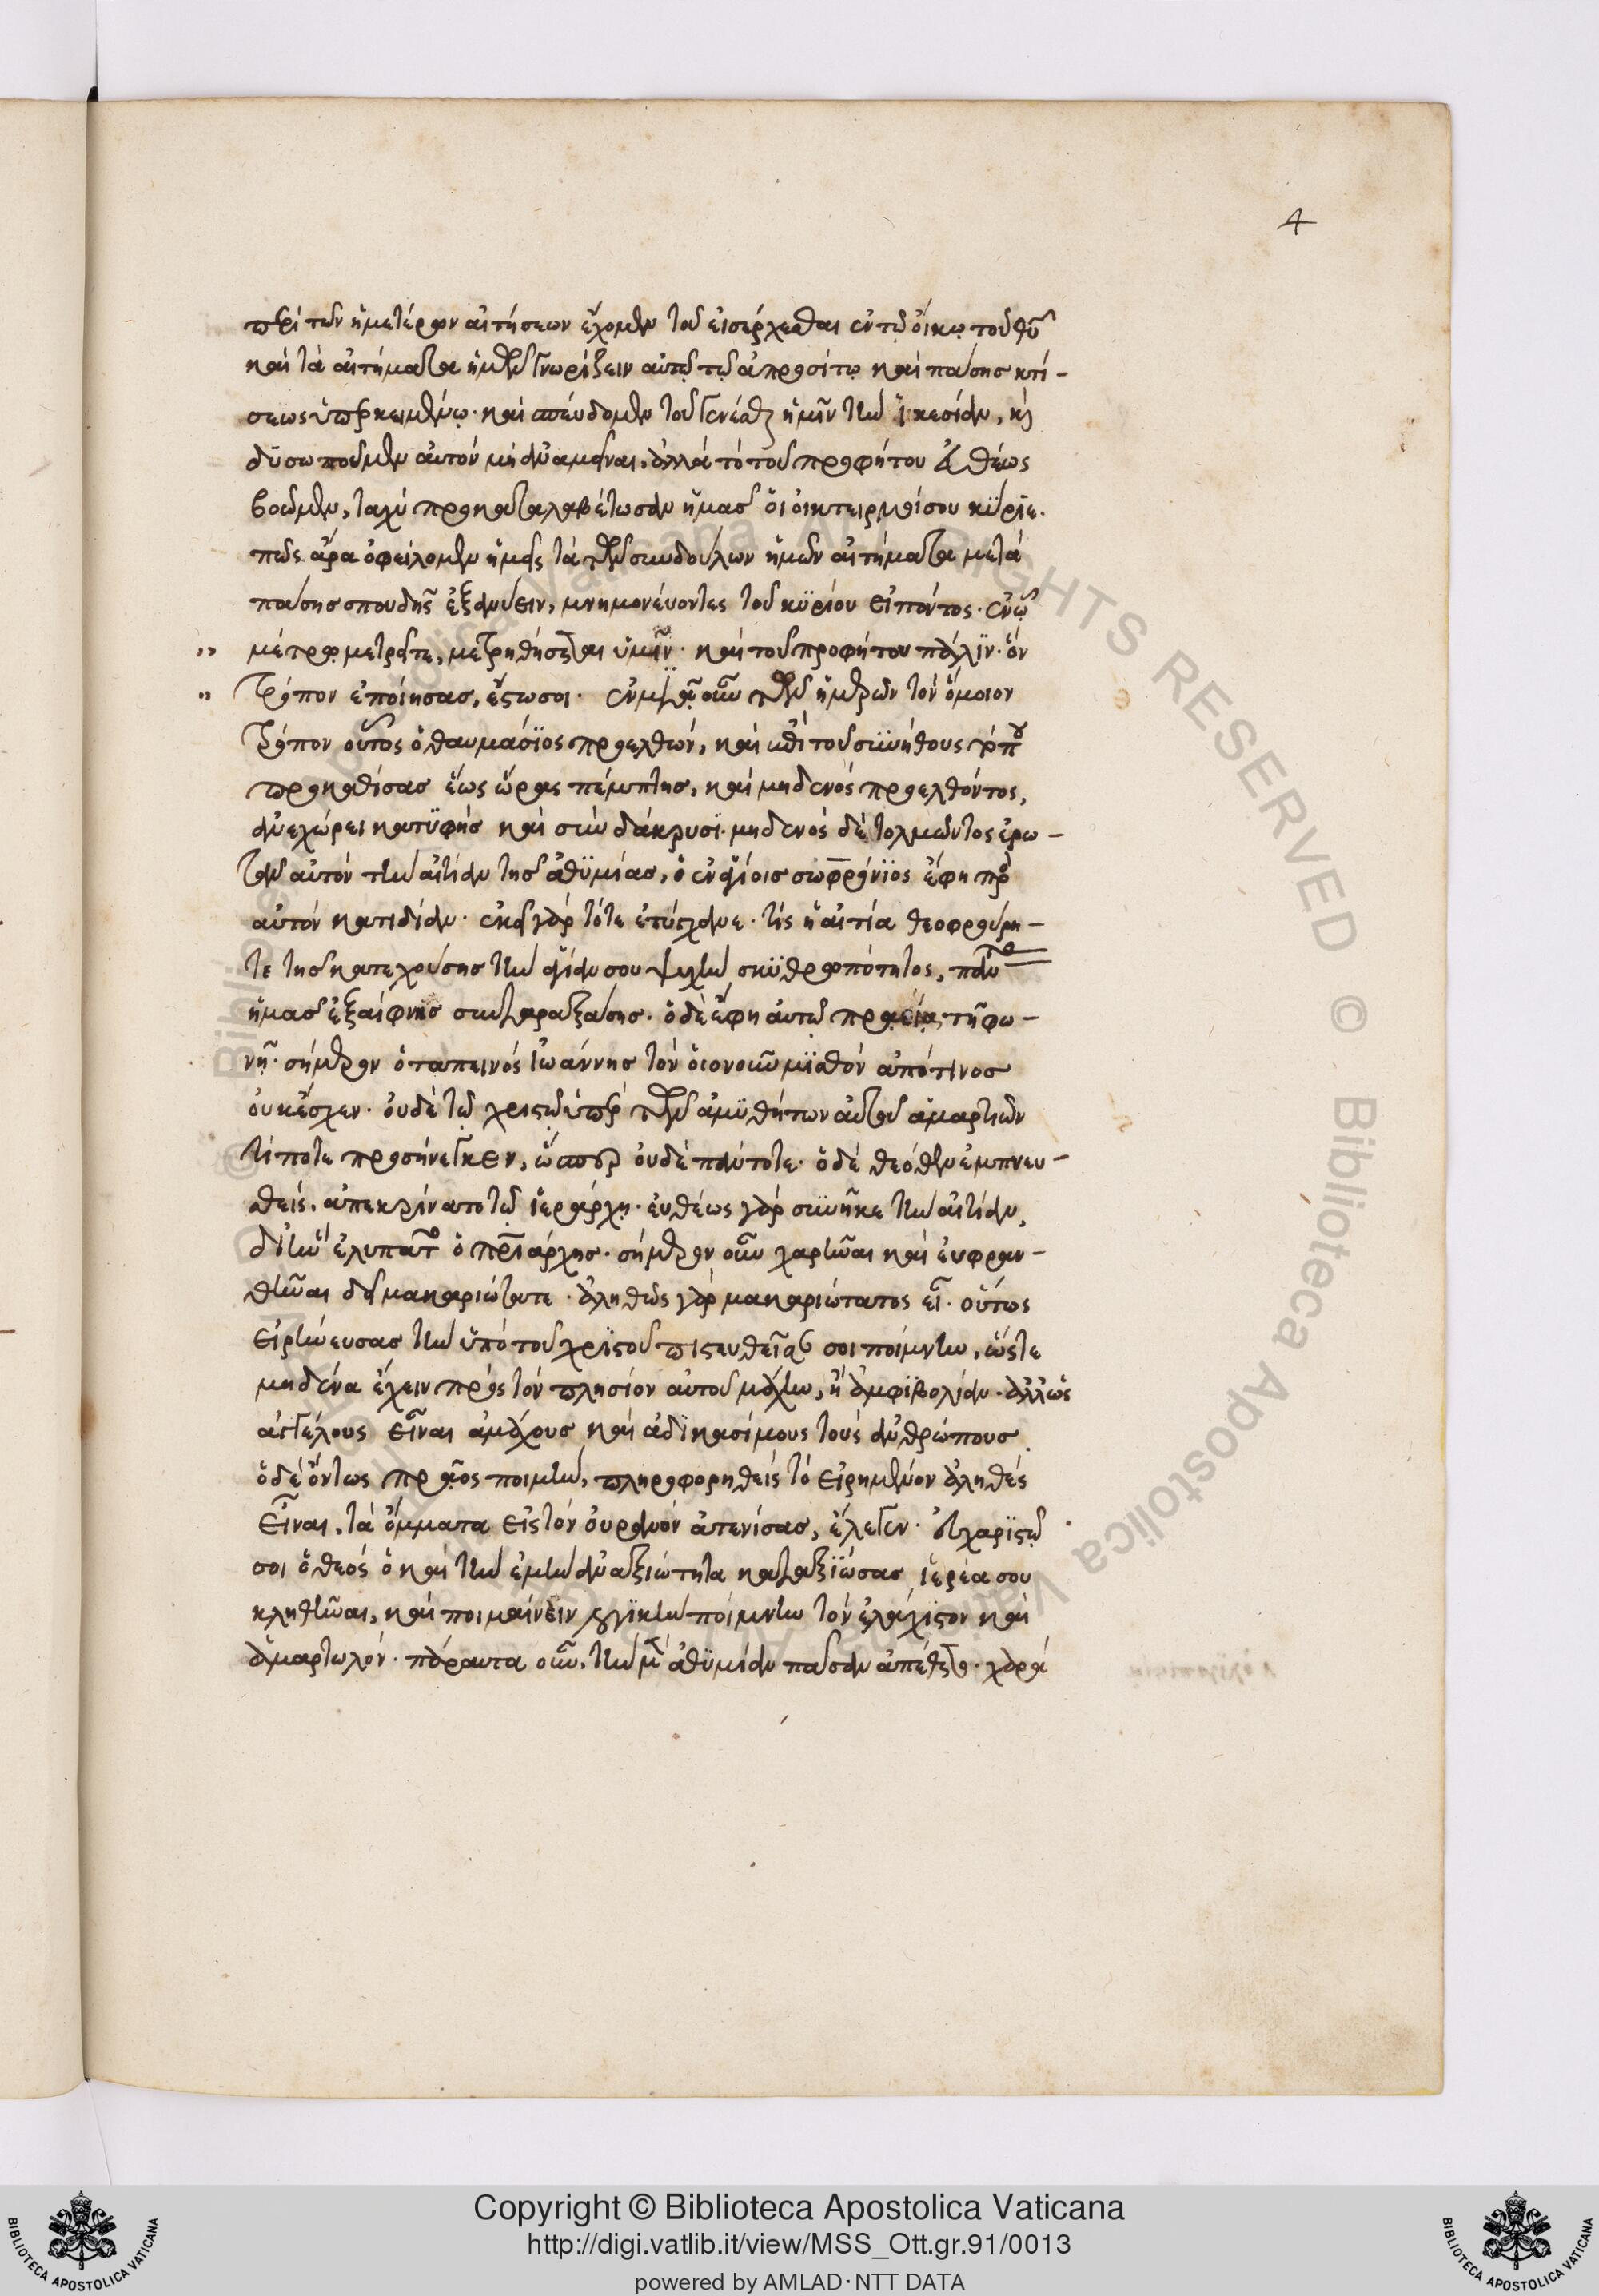 4
περὶ τῶν ἡμετέρων αἰτήσεων ἔχομεν τοῦ εἰσέρχεσθαι ἐν τῷ οἴκῳ τοῦ θῦ
καὶ τὰ αἰτήματα ἡμῶν γνωρίζειν αὐτῷ τῷ ἀπροσίτῳ καὶ πάσης κτί-
σεως ὑπερκειμένῳ· καὶ σπεύδομεν τοῦ γενέσθαι ἡμῖν τὴν ἱκεσίαν, κὶ
δϋσωποῦμεν αὐτὸν μὴ ἀναμεῖναι, ἀλλὰ τὸ τοῦ προφήτου εὐθέως
βοῶμεν, ταχὺ προκαταλαβέτωσαν ἡμᾶσ οἱ οἰκτειρμοί σου κύριε.
πῶς ἄρα ὀφείλομεν ἡμεῖς τὰ τῶν συνδούλων ἡμῶν αἰτήματα μετὰ
πάσησ σπουδῆς ἐξανύειν, μνημονεύοντες τοῦ κϋρίου εἰπόντος· ἐν ᾧ
,, μέτρῳ μετρεῖτε, μετρηθήσεται ὑμῖν· καὶ τοῦ προφήτου πάλϊν· ὃν
,, τρόπον ἐποίησασ, ἔσται σοι· ἐν μιᾷ οὖν τῶν ἡμερῶν τὸν ὅμοιον
τρόπον οὗτος ὁ θαυμάσϊος προελθών, καὶ ἐπὶ τοῦ σϋνήθους
προκαθίσασ ἕως ὥρας πέμπτησ, καὶ μηδενὸς προελθόντος,
ἀνεχώρει κατϋφὴσ καὶ σὺν δάκρυσϊ· μηδενὸς δὲ τολμῶντος ἐρω-
τᾶν αὐτὸν τὴν αἰτίαν τῆσ ἀθϋμίασ, ὁ ἐν ἁγίοισ σωφρόνϊος ἔφη πρὸ
αὐτὸν κατιδίαν· ἐκεῖ γὰρ τότε ἐτύγχανε· τίς ἡ αἰτία θεοφρούρη-
τε τῆσ κατεχούσησ τὴν ἁγίαν σου ψυχὴν σκϋθρωπότητος,
ἡμᾶσ ἐξαίφνησ συνταραξάσησ· ὁ δὲ ἔφη αὐτῷ πραείᾳ τῇ φω-
νῇ· σήμερον ὁ ταπεινὸς Ἰωάννησ τὸν οἱονοῦν μϊσθὸν ἀπό τινοσ
οὐκ ἔσχεν· οὐδὲ τῷ χριστῷ ὑπὲρ τῶν ἀμϋθήτων αὐτοῦ ἁμαρτιῶν
τίποτε προσήνεγκεν, ὥσπερ οὐδὲ πώποτε· ὁ δὲ θεόθεν ἐμπνευ-
σθείς. ἀπεκρίνατο τῷ ἱεράρχῃ· εὐθέως γὰρ σϋνῆκε τὴν αἰτίαν,
δι' ἣν ἐλυπᾶτο ὁ πριάρχησ· σήμερον οὖν χαρῆναι καὶ εὐφραν-
θῆναι δεῖ μακαριώτατε· ἀληθῶς γὰρ μακαριώτατος εἶ· οὕτως
εἰρήνευσασ τὴν ὑπὸ τοῦ χρϊστοῦ πιστευθεῖσάν σοι ποίμνην, ὥστε
μηδένα ἔχειν πρὸς τὸν πλησίον αὐτοῦ μάχην, ἢ ἀμφϊβολίαν· ἀλλ' ὡς
ἀγγέλους εἶναι ἀμάχουσ καὶ ἀδϊκασίμους τοὺς ἀνθρώπουσ
ὁ δὲ ὄντως πρᾷος ποιμὴν, πληροφορηθεὶς τὸ εἰρημένον ἀληθὲς
εἶναι, τὰ ὄμματα εἰς τὸν οὐρανὸν ἀτενίσασ, ἔλεγεν· εὐχαρϊστῶ
σοι ὁ θεὸς ὁ καὶ τὴν ἐμὴν ἀναξιότητα καταξϊώσασ ἱερέα σου
κληθῆναι, καὶ ποιμαίνειν λογϊκὴν ποίμνην τὸν ἐλάχϊστον καὶ
ἁμαρτωλόν· πάραυτα οὖν, τὴν μὲν ἀθϋμίαν πᾶσαν ἀπέθετο· χαρᾷ
Copyright © Biblioteca Apostolica Vaticana
http://digi.vatlib.it/view/MSS_Ott.gr.91/0013
powered by AMLAD·NTT DATA
BIBLIOTECA APOSTOLICA VATICANA
BIBLIOTECA APOSTOLICA VATICANA